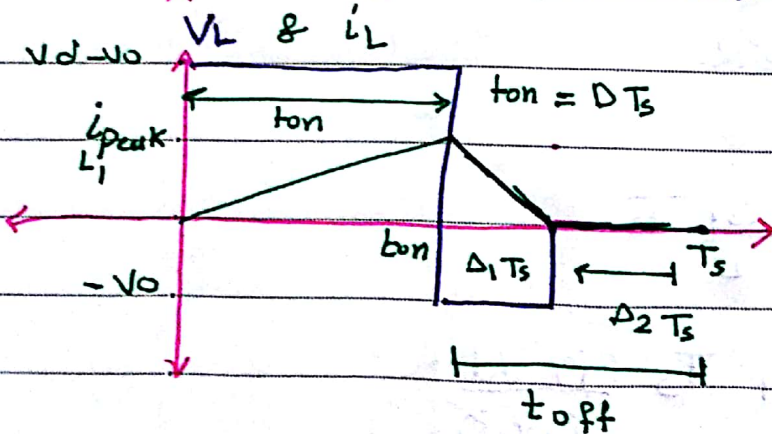 VL & iL
Vd-Vo
ton = DTs
ton
ipeak
L1
ton
Δ1Ts
Ts
-Vo
Δ2Ts
toff